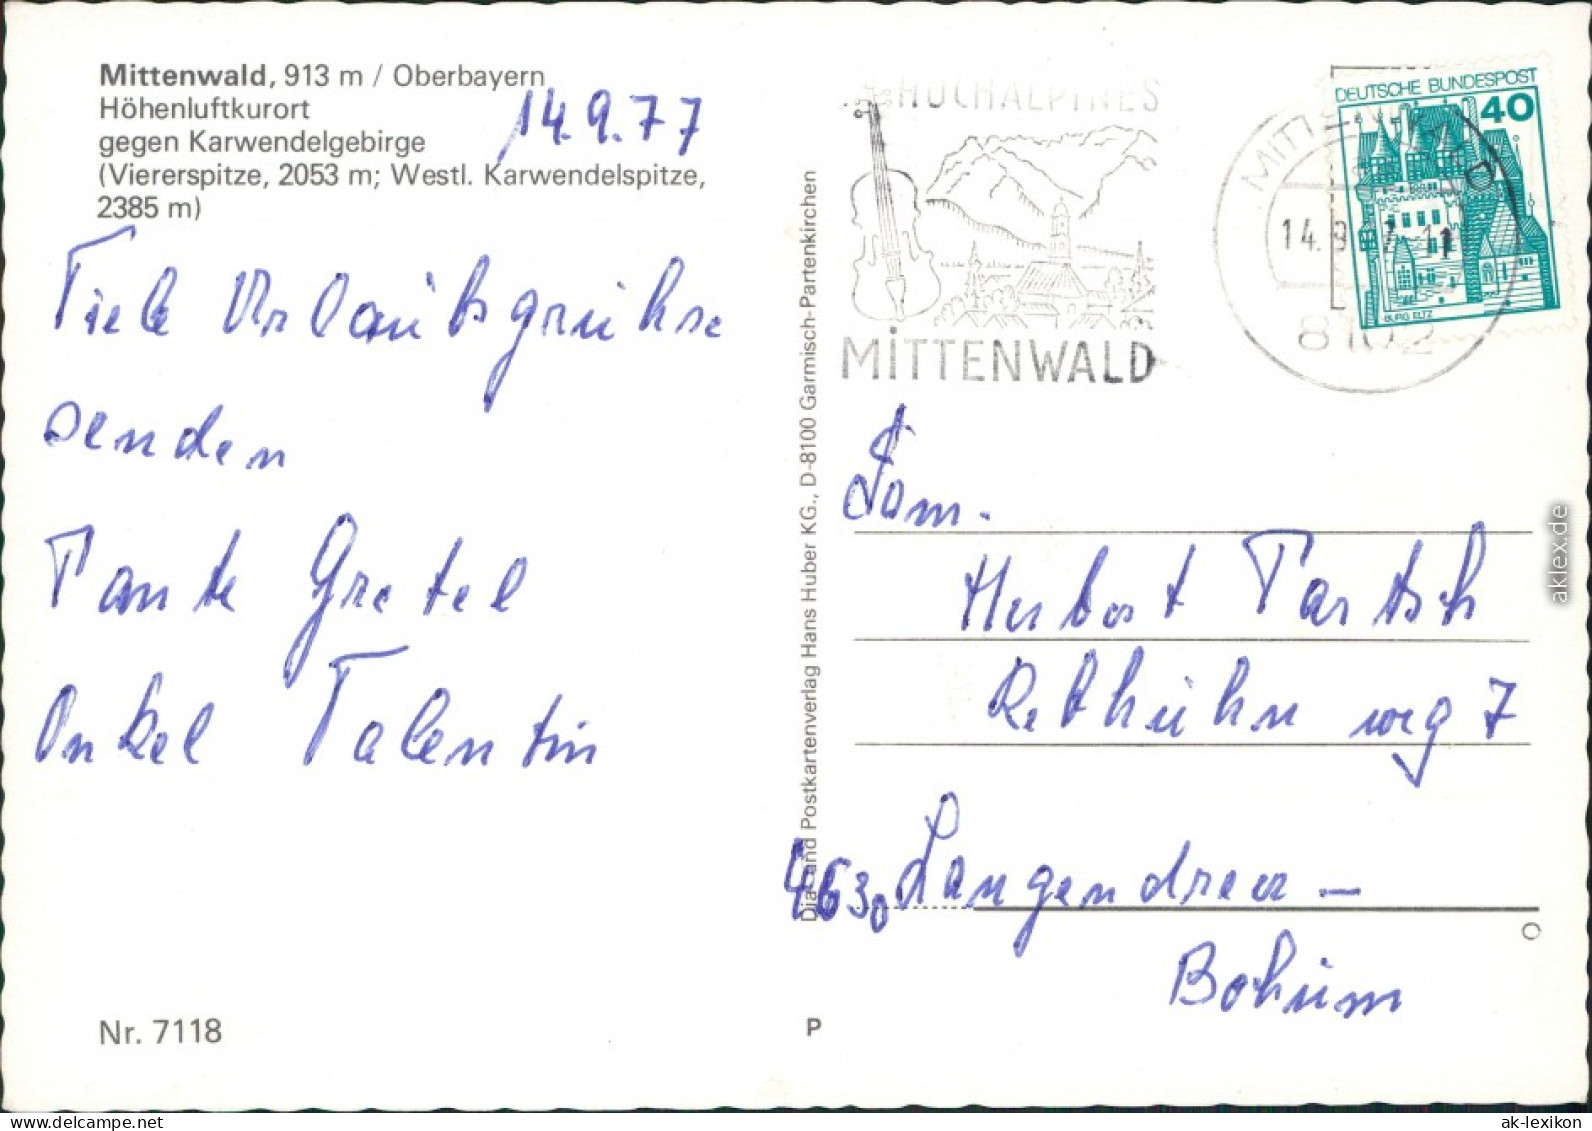 Mittenwald, 913 m / Oberbayern
Höhenluftkurort
gegen Karwendelgebirge
(Viererspitze, 2053 m; Westl. Karwendelspitze,
2385 m)
14.9.77
Viele Urlaubsgrühse
senden
Tante Gretel
Onkel Valentin
Nr. 7118
Dia- und Postkartenverlag Hans Huber KG., D-8100 Garmisch-Partenkirchen
P
HOCHALPINES
MITTENWALD
MITTENWALD
14.9.77
8102
DEUTSCHE BUNDESPOST
40
BURG ELTZ
Fam.
Herbert Partsch
Rebhuhnweg 7
4630 Langendreer-
Bohum
aklex.de
ak-lexikon